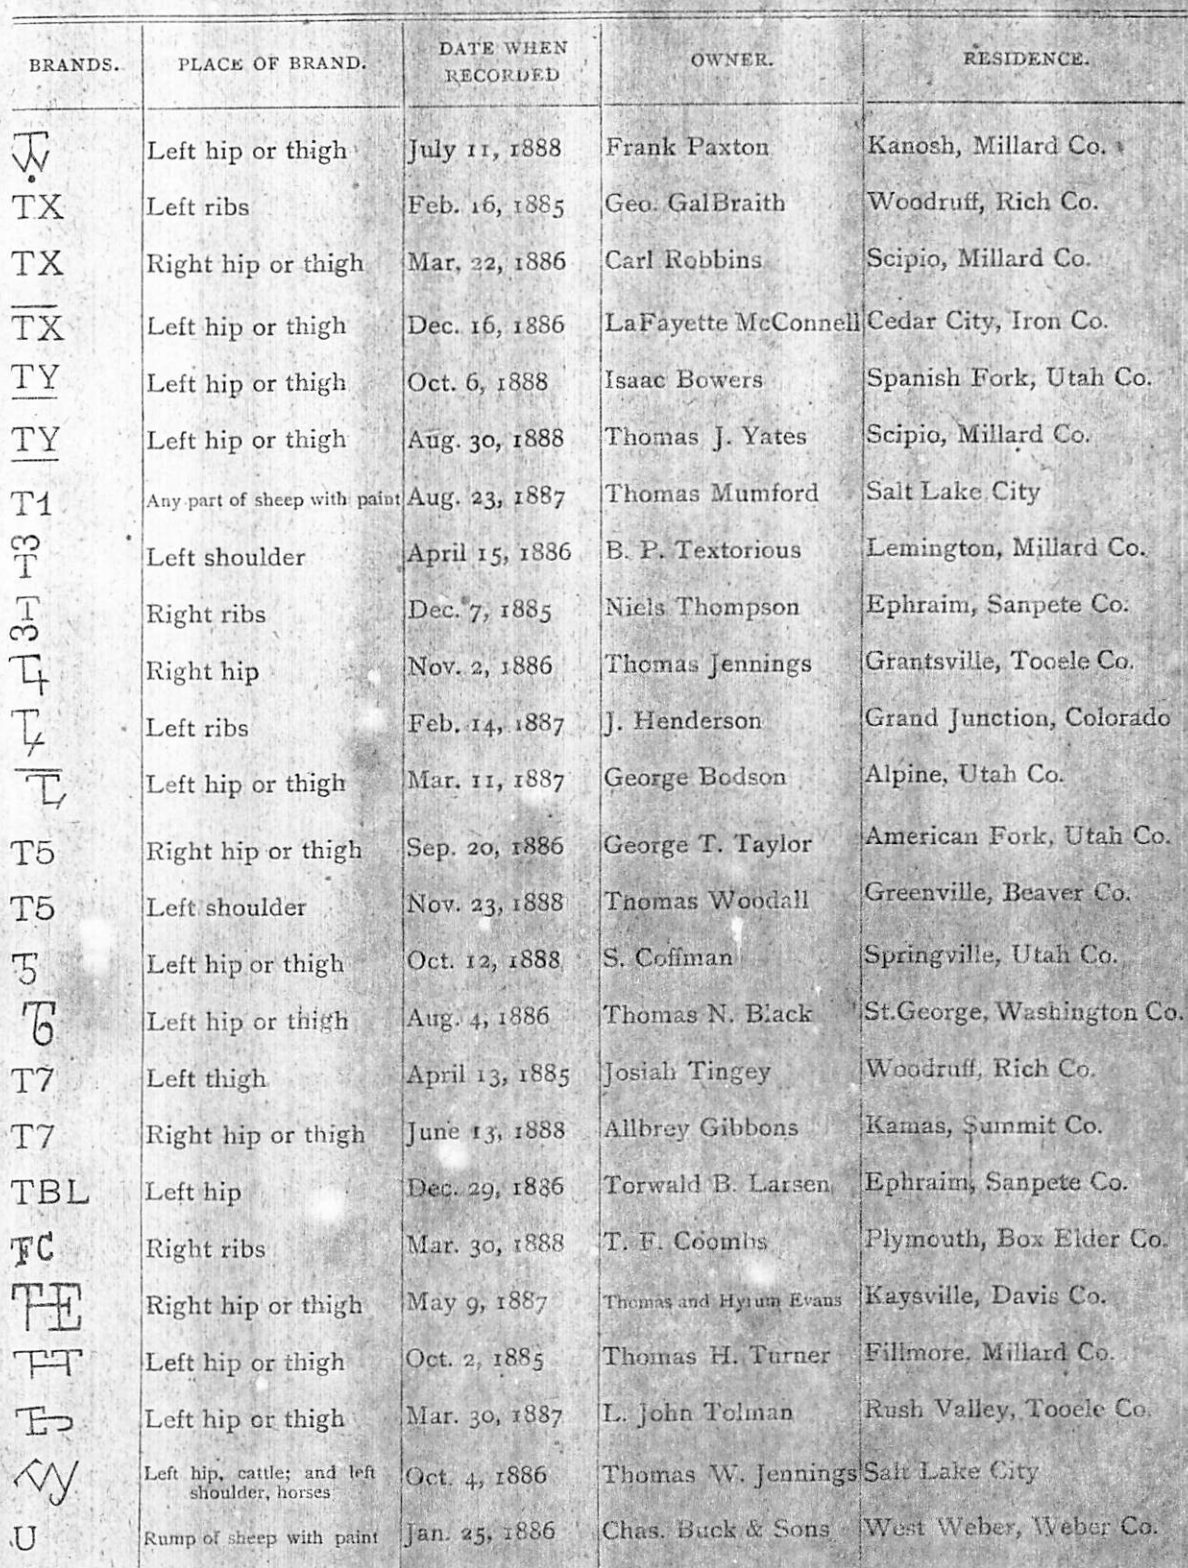 BRANDS. PLACE OF BRAND. DATE WHEN RECORDED OWNER. RESIDENCE.
Left hip or thigh July 11, 1888 Frank Paxton Kanosh, Millard Co.
TX Left ribs Feb. 16, 1885 Geo. GalBraith Woodruff, Rich Co.
TX Right hip or thigh Mar. 22, 1886 Carl Robbins Scipio, Millard Co.
TX Left hip or thigh Dec. 16, 1886 LaFayette McConnell Cedar City, Iron Co.
TY Left hip or thigh Oct. 6, 1888 Isaac Bowers Spanish Fork, Utah Co.
TY Left hip or thigh Aug. 30, 1888 Thomas J. Yates Scipio, Millard Co.
T1 Any part of sheep with paint Aug. 23, 1887 Thomas Mumford Salt Lake City
Left shoulder April 15, 1886 B. P. Textorious Lemington, Millard Co.
Right ribs Dec. 7, 1885 Niels Thompson Ephraim, Sanpete Co.
Right hip Nov. 2, 1886 Thomas Jennings Grantsville, Tooele Co.
Left ribs Feb. 14, 1887 J. Henderson Grand Junction, Colorado
Left hip or thigh Mar. 11, 1887 George Bodson Alpine, Utah Co.
T5 Right hip or thigh Sep. 20, 1886 George T. Taylor American Fork, Utah Co.
T5 Left shoulder Nov. 23, 1888 Thomas Woodall Greenville, Beaver Co.
Left hip or thigh Oct. 12, 1888 S. Coffman Springville, Utah Co.
Left hip or thigh Aug. 4, 1886 Thomas N. Black St.George, Washington Co.
T7 Left thigh April 13, 1885 Josiah Tingey Woodruff, Rich Co.
T7 Right hip or thigh June 13, 1888 Allbrey Gibbons Kamas, Summit Co.
TBL Left hip Dec. 29, 1886 Torwald B. Larsen Ephraim, Sanpete Co.
TC Right ribs Mar. 30, 1888 T. F. Coombs Plymouth, Box Elder Co.
Right hip or thigh May 9, 1887 Thomas and Hyrum Evans Kaysville, Davis Co.
Left hip or thigh Oct. 2, 1885 Thomas H. Turner Fillmore, Millard Co.
Left hip or thigh Mar. 30, 1887 L. John Tolman Rush Valley, Tooele Co.
Left hip, cattle; and left shoulder, horses Oct. 4, 1886 Thomas W. Jennings Salt Lake City
U Rump of sheep with paint Jan. 25, 1886 Chas. Buck & Sons West Weber, Weber Co.